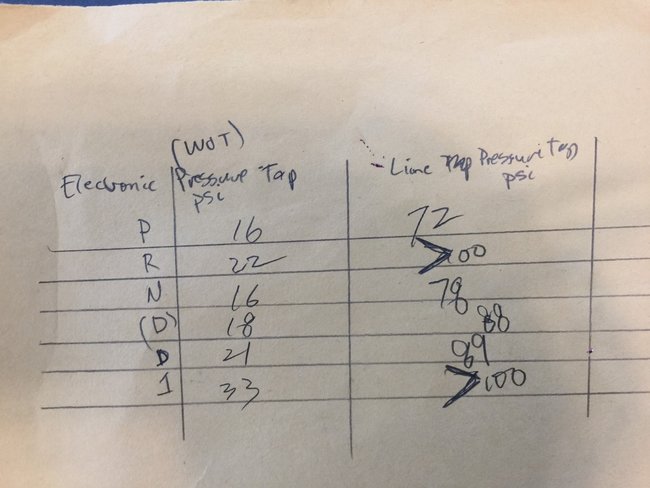 (WOT)
Electronic Pressure Tap Line Pressure Tap
psi psi
P 16 72
R 22 >100
N 16 78
(D) 18 88
D 21 89
1 33 >100